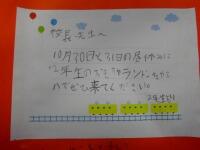 校長先生へ
10月30日と31日の昼休みに
2年生のおもちゃランドをやるから
ぜひ来てください。
2年生より